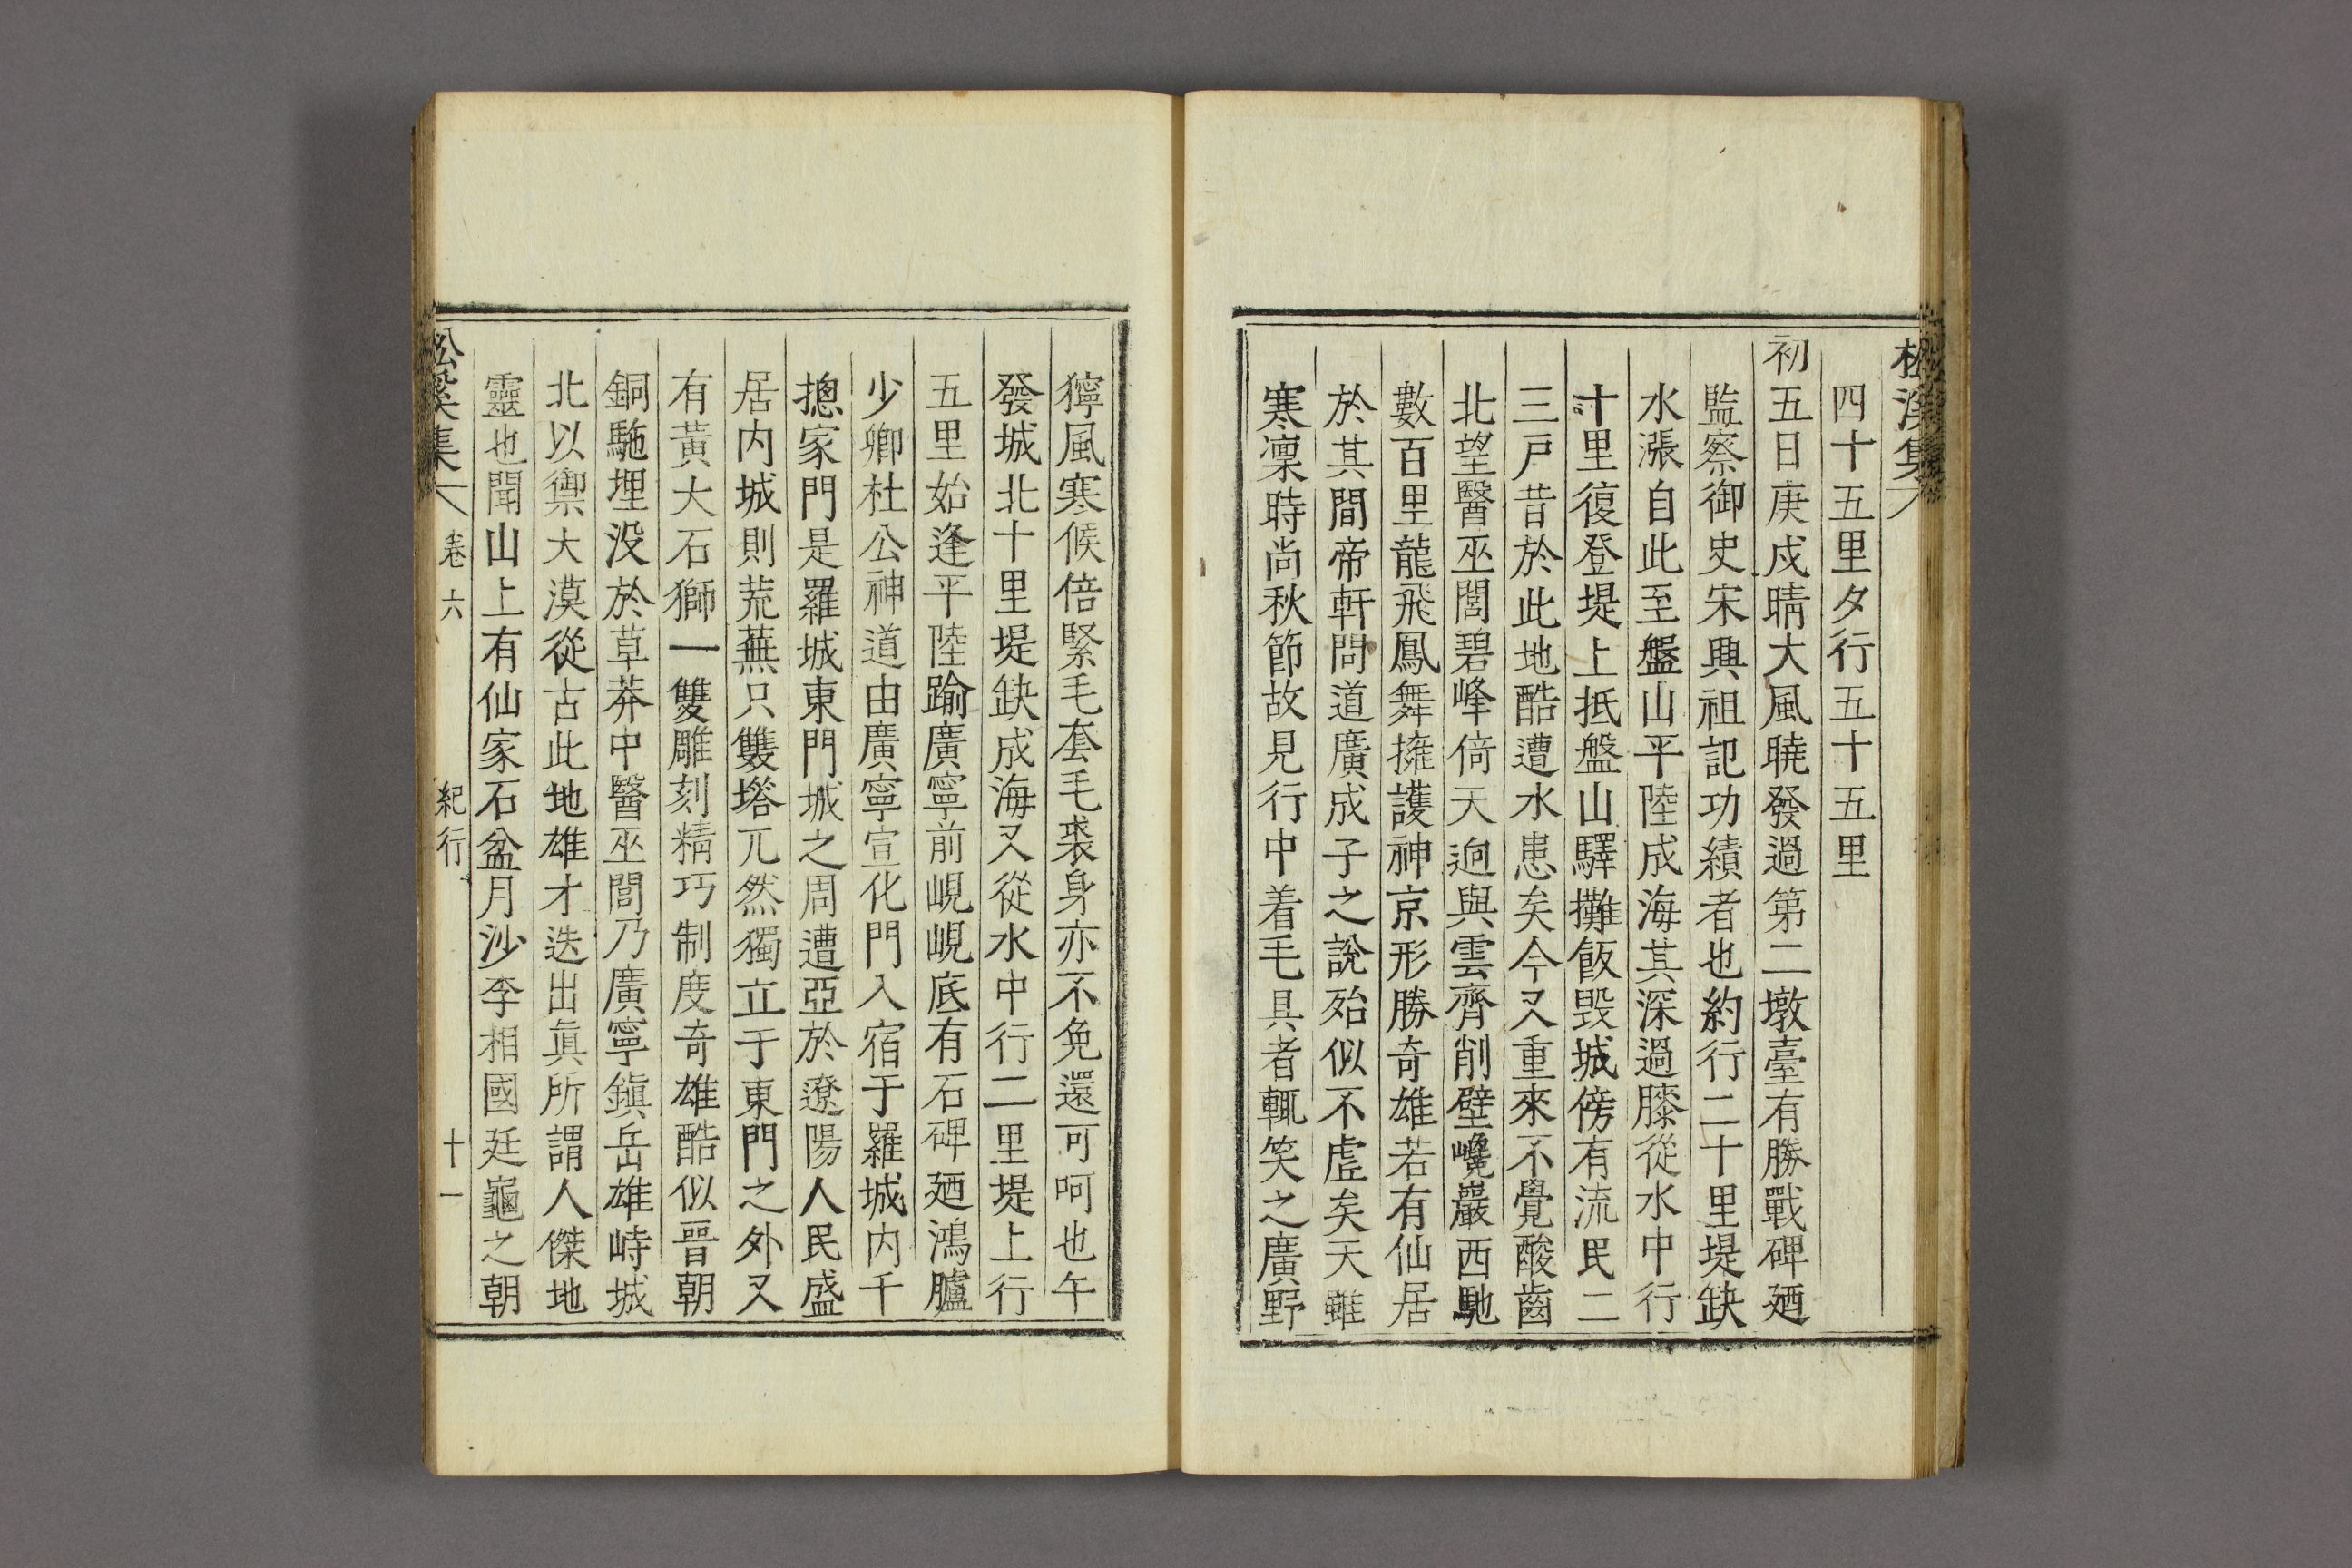 松溪集
四十五里夕行五十五里
初五日庚戌晴大風曉發過第二墩臺有勝戰碑廼
監察御史宋興祖記功績者也約行二十里堤缺
水漲自此至盤山平陸成海其深過膝從水中行
十里復登堤上抵盤山驛攤飯毁城傍有流民二
三戶昔於此地酷遭水患矣今又重來不覺酸齒
北望醫巫閭碧峰倚天逈與雲齊削壁巉巖西馳
數百里龍飛鳳舞擁護神京形勝奇雄若有仙居
於其間帝軒問道廣成子之說殆似不虛矣天雖
寒凛時尚秋節故見行中着毛具者輒笑之廣野
獰風寒候倍緊毛套毛裘身亦不免還可呵也午
發城北十里堤缺成海又從水中行二里堤上行
五里始逢平陸踰廣寧前峴峴底有石碑廼鴻臚
少卿杜公神道由廣寧宣化門入宿于羅城内千
摠家門是羅城東門城之周遭亞於遼陽人民盛
居内城則荒蕪只雙塔兀然獨立于東門之外又
有黃大石獅一雙雕刻精巧制度奇雄酷似晋朝
銅駞埋没於草莽中醫巫閭乃廣寧鎭岳雄峙城
北以禦大漠從古此地雄才迭出眞所謂人傑地
靈也聞山上有仙家石盆月沙李相國廷龜之朝
松溪集 卷六 紀行 十一